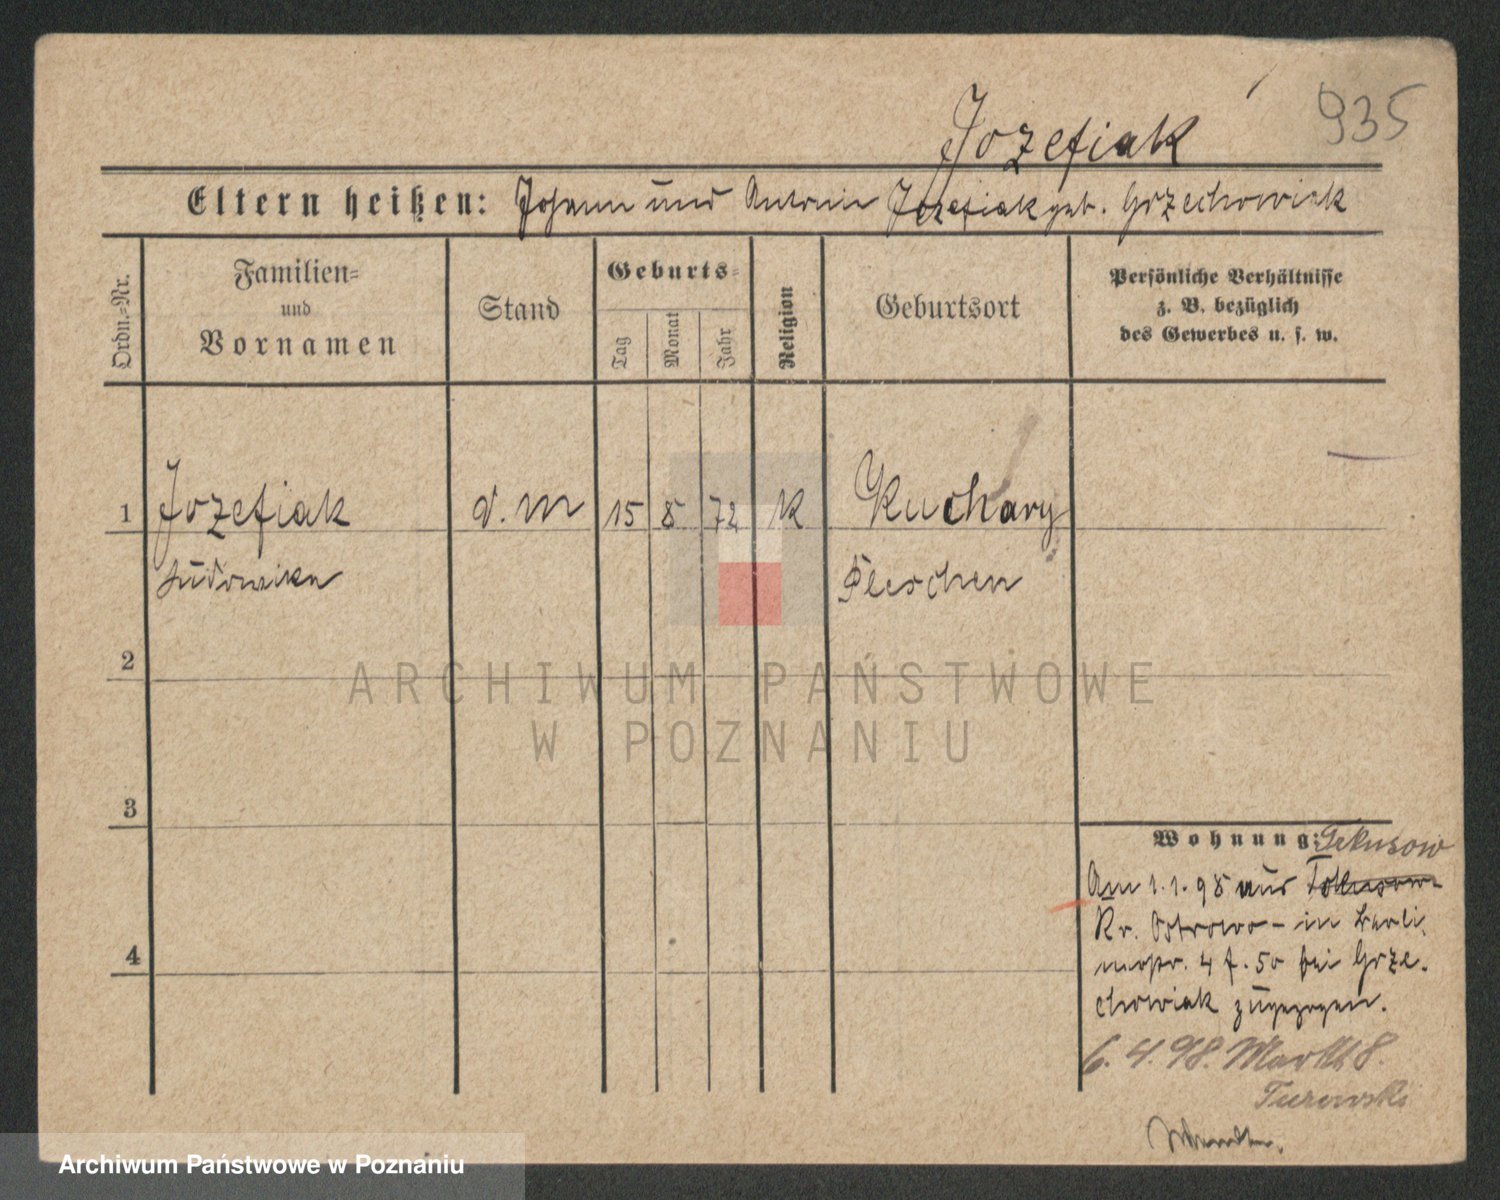 935
Jozefiak
Eltern heißen: Johann und Antonie Jozefiak geb. Grzechowiak
Ordn.=Nr.
Familien=
und
Vornamen
Stand
Geburts=
Tag
Monat
Jahr
Religion
Geburtsort
Persönliche Verhältnisse
z. B. bezüglich
des Gewerbes u. s. w.
1 Jozefiak d. M 15 8 72 K Kuchary
Ludowika Pleschen
2
3
4
Wohnung:
Am 1.1.98 aus
Kr. Ostrowo - in
4 f. 50 bei Grze-
chowiak zugezogen.
6. 4. 98. Markt 8.
Turowski
ARCHIWUM PAŃSTWOWE
W POZNANIU
Archiwum Państwowe w Poznaniu